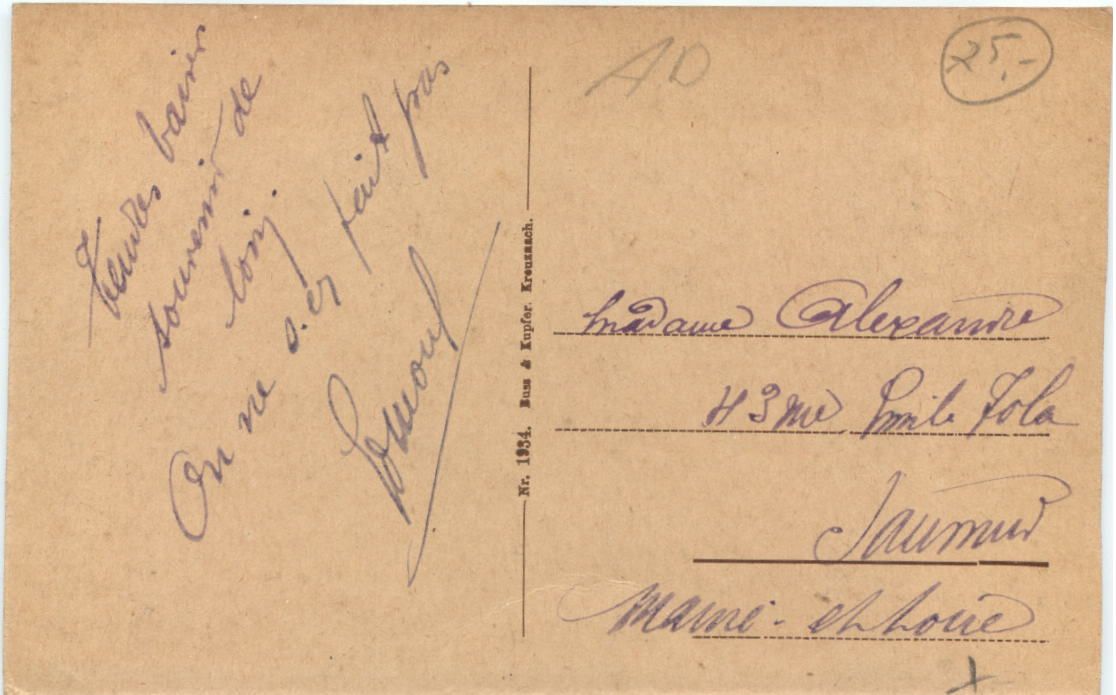 Tendres baisers
souvenir de
loin.
On ne s'en fait pas
Nr. 1934. Buss & Kupfer. Kreuznach.
AD
25,-
Madame Alexandre
43 rue Emile Zola
Saumur
Maine-et-Loire